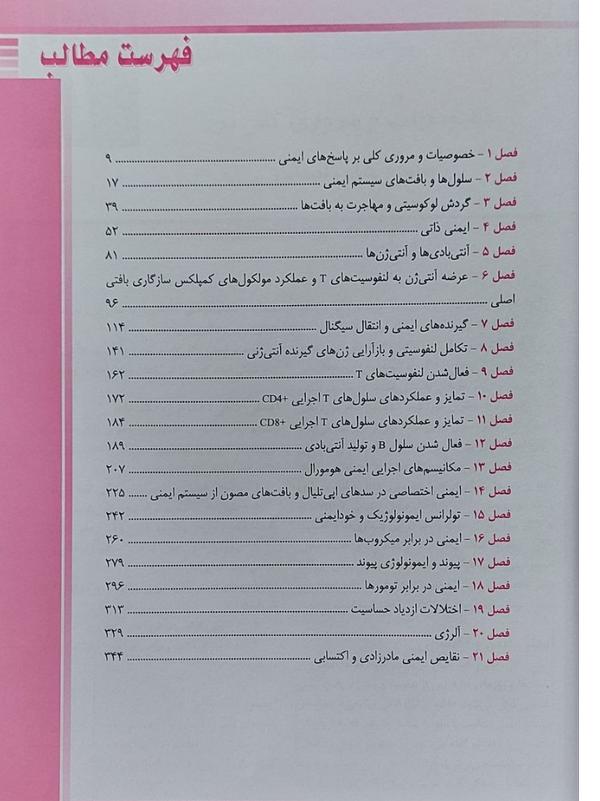 فهرست مطالب
فصل ۱ - خصوصیات و مروری کلی بر پاسخ‌های ایمنی ........ ۹
فصل ۲ - سلول‌ها و بافت‌های سیستم ایمنی ........ ۱۷
فصل ۳ - گردش لوکوسیتی و مهاجرت به بافت‌ها ........ ۳۹
فصل ۴ - ایمنی ذاتی ........ ۵۲
فصل ۵ - آنتی‌بادی‌ها و آنتی‌ژن‌ها ........ ۸۱
فصل ۶ - عرضه آنتی‌ژن به لنفوسیت‌های T و عملکرد مولکول‌های کمپلکس سازگاری بافتی
اصلی ........ ۹۶
فصل ۷ - گیرنده‌های ایمنی و انتقال سیگنال ........ ۱۱۴
فصل ۸ - تکامل لنفوسیتی و بازآرایی ژن‌های گیرنده آنتی‌ژنی ........ ۱۴۱
فصل ۹ - فعال‌شدن لنفوسیت‌های T ........ ۱۶۲
فصل ۱۰ - تمایز و عملکردهای سلول‌های T اجرایی CD4+ ........ ۱۷۲
فصل ۱۱ - تمایز و عملکردهای سلول‌های T اجرایی CD8+ ........ ۱۸۴
فصل ۱۲ - فعال شدن سلول B و تولید آنتی‌بادی ........ ۱۸۹
فصل ۱۳ - مکانیسم‌های اجرایی ایمنی هومورال ........ ۲۰۷
فصل ۱۴ - ایمنی اختصاصی در سدهای اپی‌تلیال و بافت‌های مصون از سیستم ایمنی ....... ۲۲۵
فصل ۱۵ - تولرانس ایمونولوژیک و خودایمنی ........ ۲۴۲
فصل ۱۶ - ایمنی در برابر میکروب‌ها ........ ۲۶۰
فصل ۱۷ - پیوند و ایمونولوژی پیوند ........ ۲۷۹
فصل ۱۸ - ایمنی در برابر تومورها ........ ۲۹۶
فصل ۱۹ - اختلالات ازدیاد حساسیت ........ ۳۱۳
فصل ۲۰ - آلرژی ........ ۳۲۹
فصل ۲۱ - نقایص ایمنی مادرزادی و اکتسابی ........ ۳۴۴